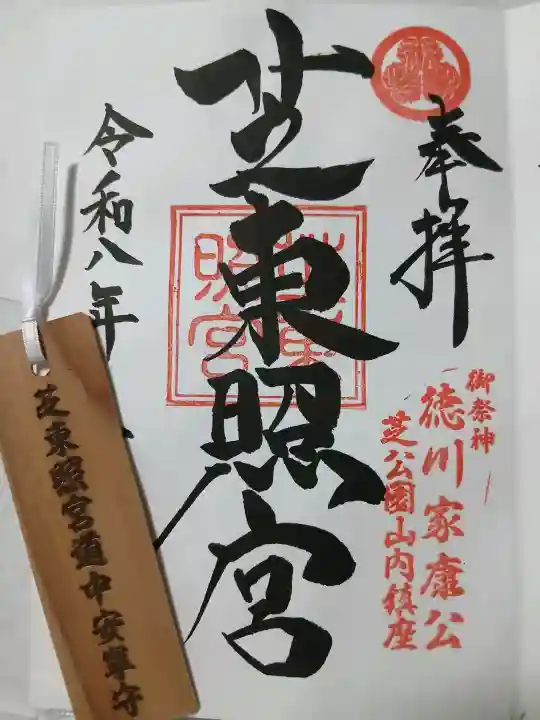 奉拝
御祭神
徳川家康公
芝公園山内鎮座
芝東照宮
芝東照宮
令和八年
芝東照宮道中安寧守